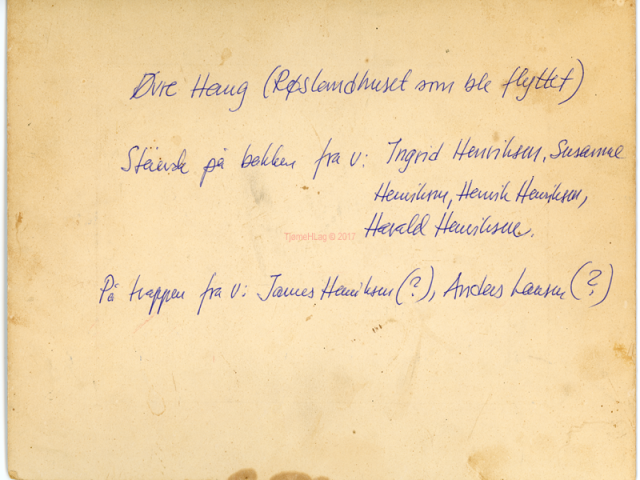 Øvre Haug (Røslandhuset som ble flyttet)
Stående på bakken fra v: Ingvid Henriksen, Susanne
Henriksen, Henrik Henriksen,
TjømeHLag © 2017
Harald Henriksen.
På trappen fra v: James Henriksen (?), Anders Larsen (?)